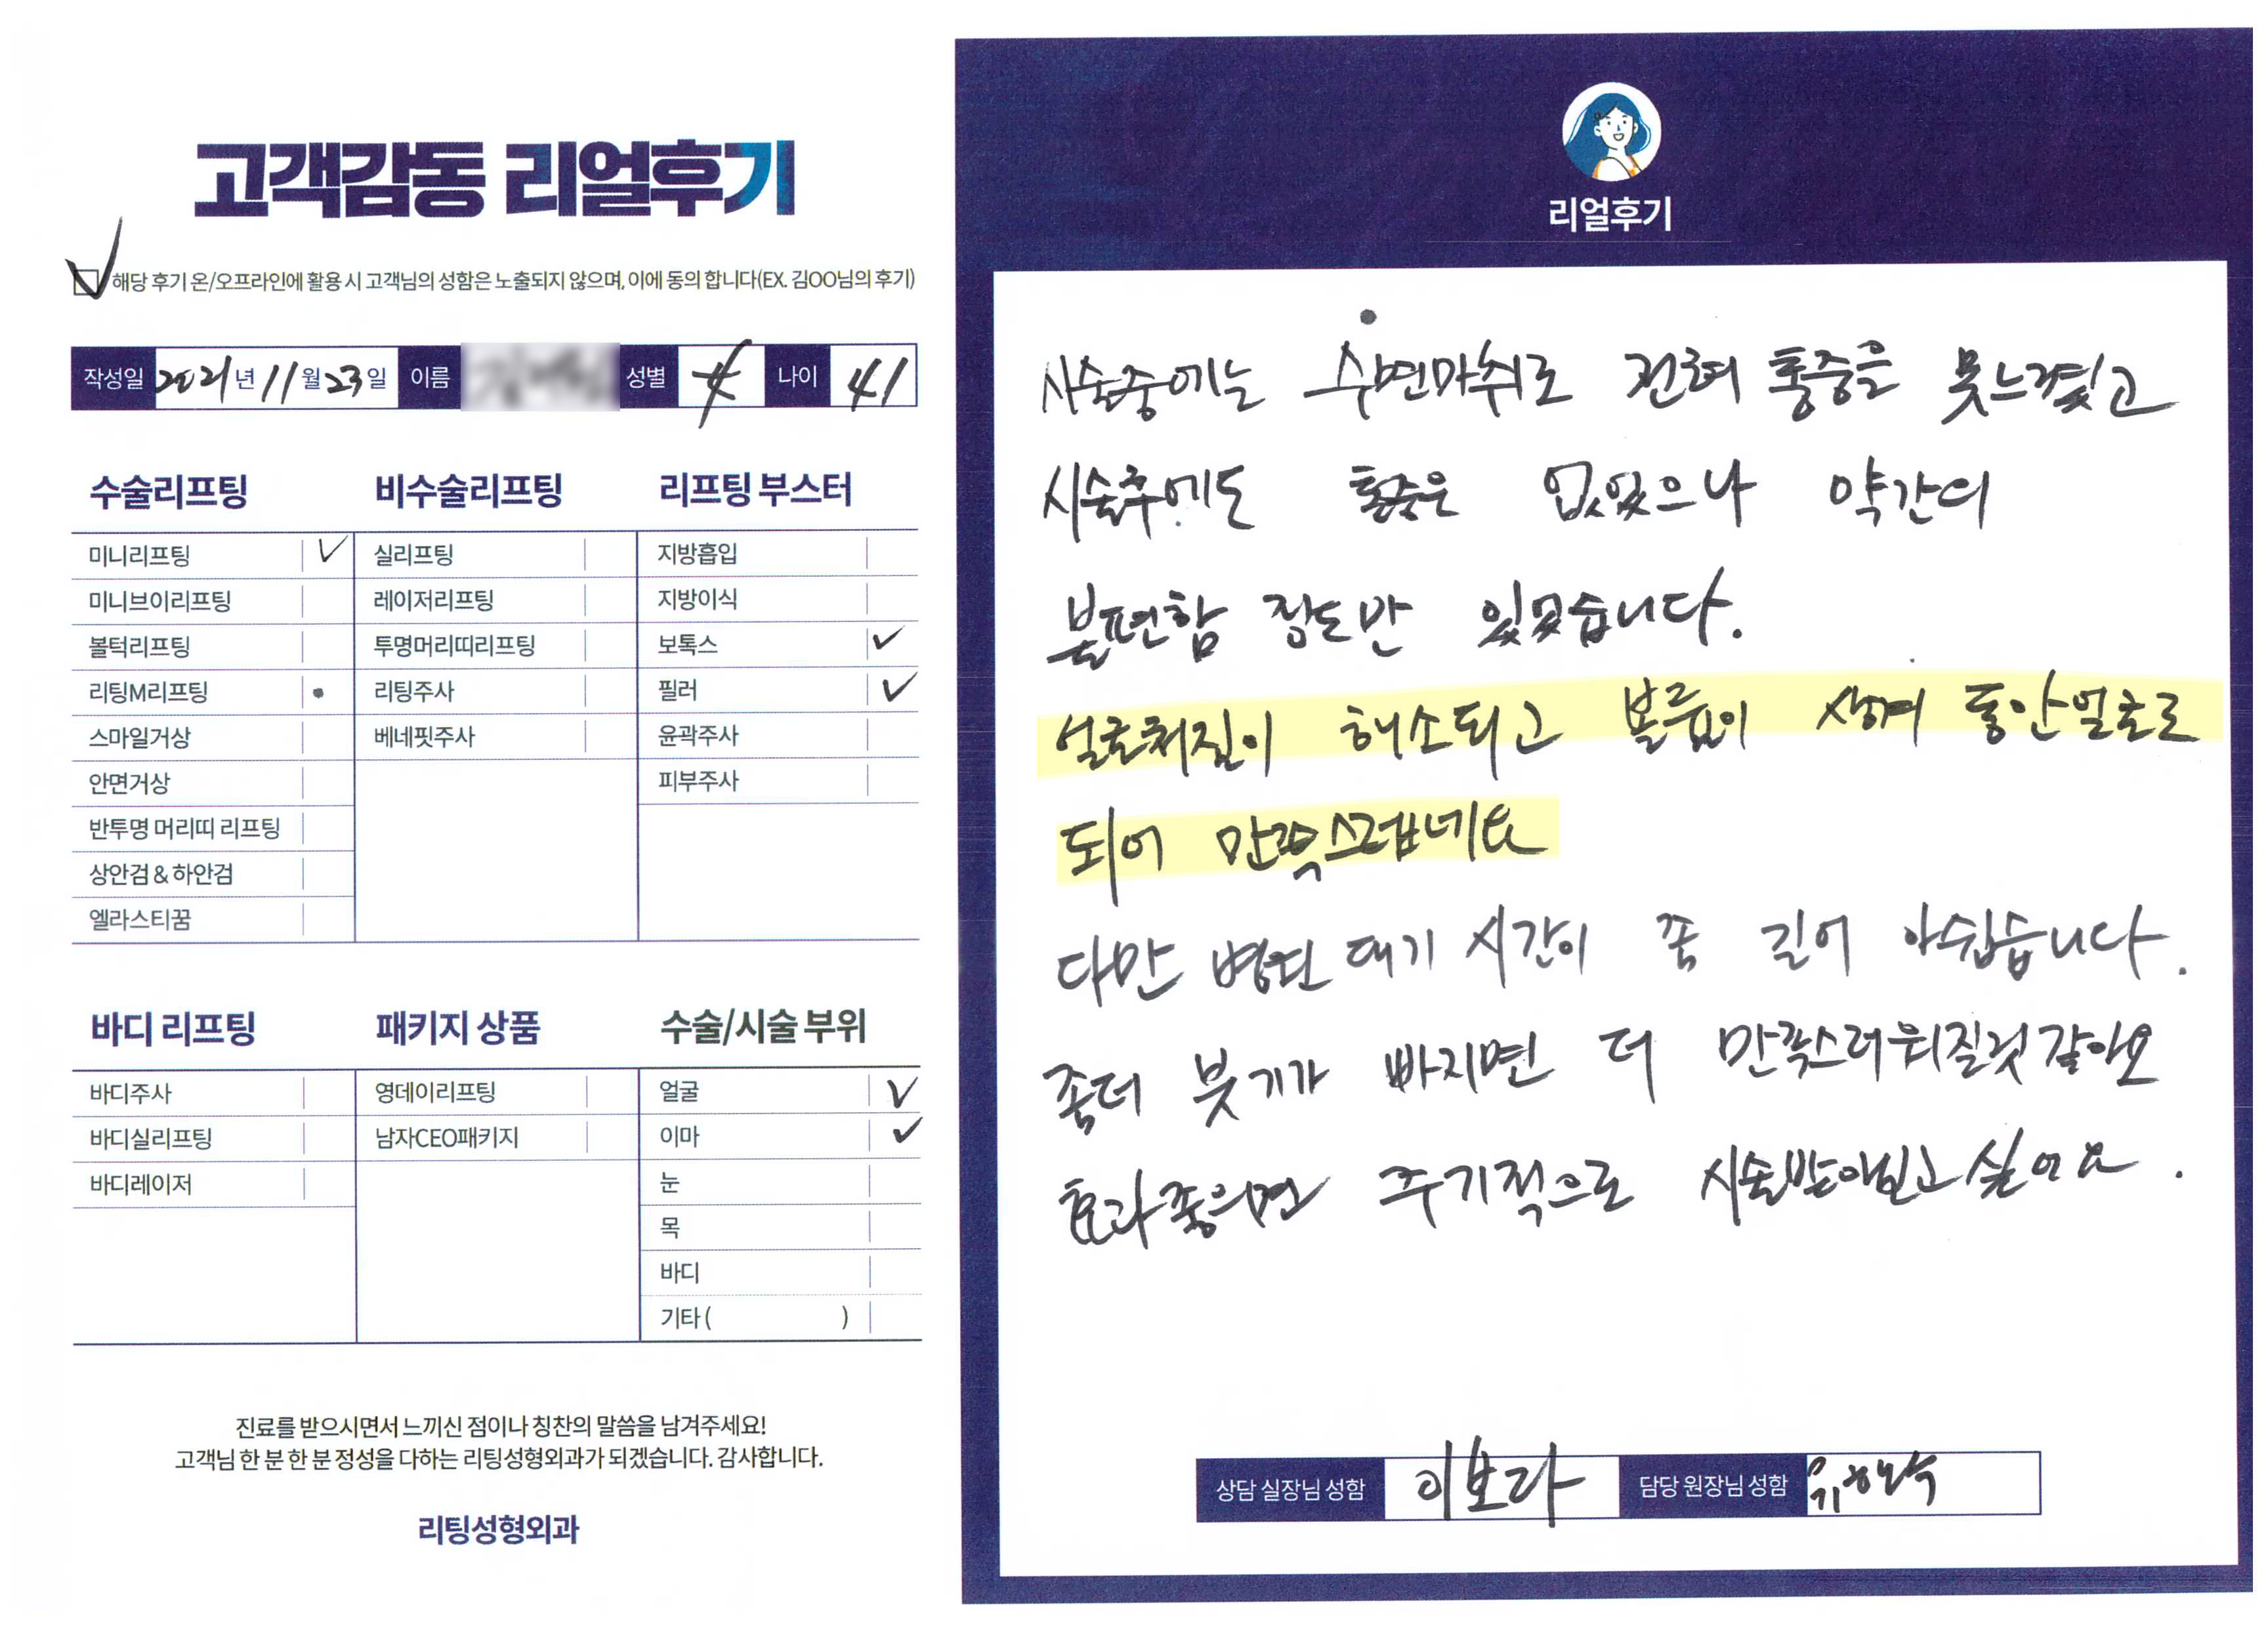 고객감동 리얼후기
해당 후기 온/오프라인에 활용 시 고객님의 성함은 노출되지 않으며, 이에 동의 합니다(EX. 김OO님의 후기)
작성일 2021년 11월 23일 이름 성별 나이 41
수술리프팅
미니리프팅
미니브이리프팅
볼턱리프팅
리팅M리프팅
스마일거상
안면거상
반투명 머리띠 리프팅
상안검 & 하안검
엘라스티꿈
비수술리프팅
실리프팅
레이저리프팅
투명머리띠리프팅
리팅주사
베네핏주사
리프팅 부스터
지방흡입
지방이식
보톡스
필러
윤곽주사
피부주사
바디 리프팅
바디주사
바디실리프팅
바디레이저
패키지 상품
영데이리프팅
남자CEO패키지
수술/시술 부위
얼굴
이마
눈
목
바디
기타 ( )
진료를 받으시면서 느끼신 점이나 칭찬의 말씀을 남겨주세요!
고객님 한 분 한 분 정성을 다하는 리팅성형외과가 되겠습니다. 감사합니다.
리팅성형외과
리얼후기
시술중에는 수면마취로 전혀 통증을 못느꼈고
시술후에도 통증은 없었으나 약간의
불편함 정도만 있었습니다.
얼굴처짐이 해소되고 볼륨이 생겨 동안얼굴로
되어 만족스럽네요
다만 병원 대기 시간이 쫌 길어 아쉽습니다.
좀더 붓기가 빠지면 더 만족스러워질것 같아요
효과좋으면 주기적으로 시술받고싶어요.
상담 실장님 성함 이보라 담당 원장님 성함